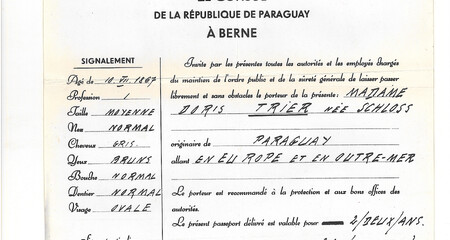 DE LA RÉPUBLIQUE DE PARAGUAY
À BERNE
SIGNALEMENT
Agé de 10.VII.1867
Profession /
Taille MOYENNE
Nez NORMAL
Cheveux GRIS.
Yeux BRUNS
Bouche NORMAL
Dentier NORMAL
Visage OVALE
Invite par les présentes toutes les autorités et les employés chargés
du maintien de l'ordre public et de la sûreté générale de laisser passer
librement et sans obstacles le porteur de la présente: MADAME
DORIS TRIER NÉE SCHLOSS
originaire de PARAGUAY
allant EN EUROPE ET EN OUTRE-MER
Le porteur est recommandé à la protection et aux bons offices des
autorités.
Le présent passeport délivré est valable pour 2/DEUX/ANS.